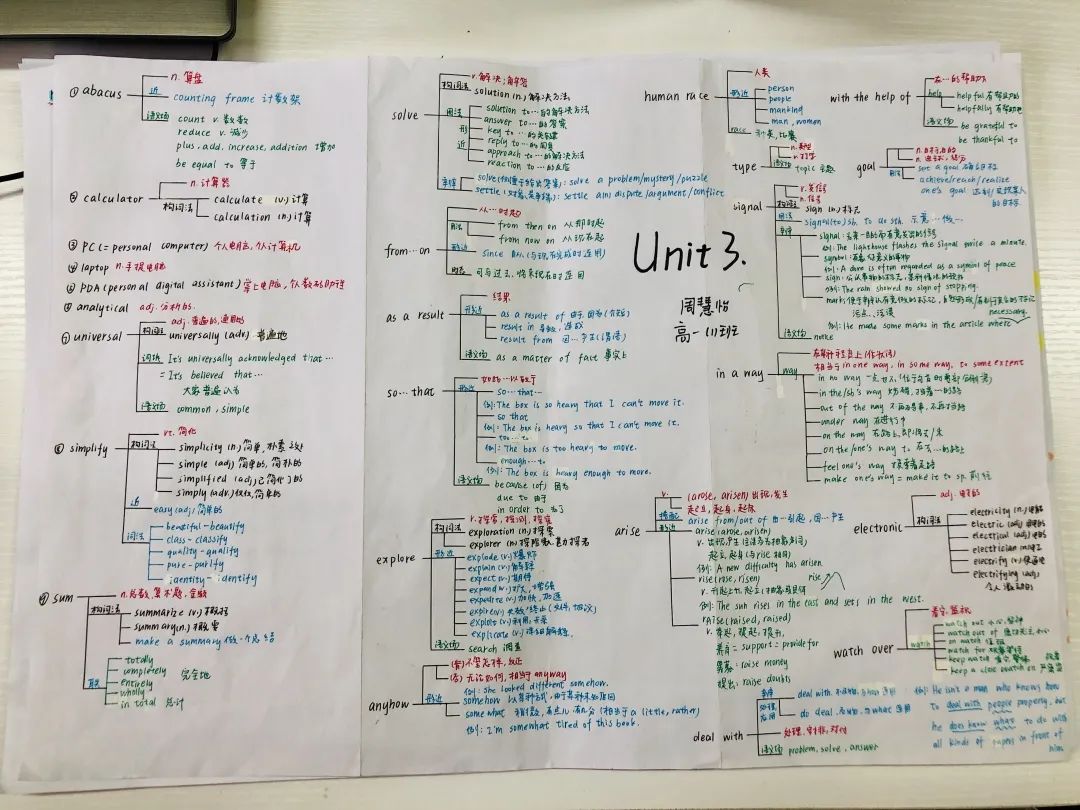 ① abacus
n. 算盘
近
counting frame 计数架
语义场
count v. 数数
reduce v. 减少
plus, add, increase, addition 增加
be equal to 等于
② calculator
n. 计算器
构词法
calculate (v.) 计算
calculation (n.) 计算
③ PC (= personal computer) 个人电脑, 个人计算机
④ laptop n. 手提电脑
⑤ PDA (personal digital assistant) 掌上电脑, 个人数码助理
⑥ analytical adj. 分析的
⑦ universal
adj. 普遍的, 通用的
构词法
universally (adv) 普遍地
词块
It's universally acknowledged that…
= It's believed that…
大家普遍认为
语义场
common, simple
⑧ simplify
vt. 简化
构词法
simplicity (n.) 简单, 朴素
simple (adj) 简单的, 简朴的
simplified (adj) 已简化了的
simply (adv.) 仅仅, 简单的
近
easy (adj) 简单的
词法
beautiful-beautify
class-classify
quality-qualify
pure-purify
identity-identify
⑨ sum
n. 总数, 算术题, 金额
构词法
summarize (v.) 概括
summary (n.) 概要
make a summary 做一个总结
totally
completely
entirely
wholly
完全地
in total 总计
solve
v. 解决; 解答
构词法
solution (n.) 解决方法
用法
solution to … 的解决方法
answer to … 的答案
key to … 的关键
reply to … 的回复
approach to … 的解决方法
reaction to … 的反应
形近
solve (侧重于给出答案): solve a problem/mystery/puzzle
settle a(n) dispute/argument/conflict
from…on
从…时起
from then on 从那时起
from now on 从现在起
形近
since
时态
可与过去、将来现在时连用
as a result
结果
形近
as a result of 由于, 因为(介短)
result in 导致, 造成
result from 因…产生
语义场
as a matter of fact 事实上
so…that
如此…以致于
形近
so…that…
例: The box is so heavy that I can't move it.
so that
例: The box is heavy so that I can't move it.
too…to…
例: The box is too heavy to move.
enough…to
例: The box is heavy enough to move.
语义场
because (of) 因为
due to 由于
in order to 为了
explore
v. 探索, 探测, 探究
构词法
exploration (n.) 探索
explorer (n.) 探险家, 勘探者
形近
explode (v.) 爆炸
explain (v.) 解释
expect (v.) 期待
expand (v.) 扩大, 增强
expedite (v.) 加快, 加速
expire (v.)
exploit (v.) 利用, 开采
explicate (v.) 详细解释
语义场
search 调查
anyhow
无论如何, 相当于 anyway
形近
例: She looked different somehow.
somehow 以某种方式, 由于某种未知原因
somewhat 稍微, 有点儿, 有几分 (相当于 a little, rather)
例: I'm somewhat tired of this book.
Unit 3.
周慧怡
高一(11)班
human race
人类
形近
person
people
mankind
man, women
race 种类, 比赛
with the help of
在…的帮助下
help
helpful 有帮助的
helpfully 有帮助地
语义场
be grateful to
be thankful to
type
n. 类型
v. 打字
语义场
topic 主题
goal
用法
set a goal 确立目标
achieve/reach/realize
one's goal 达到/实现某人
的目标
signal
v. 发信号
n. 信号
构词法
sign (n.) 标志
用法
signal (to) sb. to do sth. 示意…做…
例: The lighthouse flashes the signal twice a minute.
例: A dove is often regarded as a symbol of peace
例: The rain showed no sign of stopping.
污点、浅误
例: He made some marks in the article where
necessary.
语义场
notice
in a way
在某种程度上 (作状语)
相当于 in one way, in some way, to some extent
way
in no way 一点也不
in the/sb's way 妨碍, 挡着…的路
out of the way
under way 在进行中
on the way 在路上, 即将去/来
on the/one's way to 在去…的路上
feel one's way 摸索着走路
make one's way = make it to sp. 前往
arise
v.
(arose, arisen) 出现, 发生
起立, 起身, 起床
搭配
arise from/out of 由…引起, 因…产生
形近
arise (arose, arisen)
v. 出现, 产生
起立, 起身 (与 rise 相同)
例: A new difficulty has arisen.
rise (rose, risen)
rise
例: The sun rises in the east and sets in the west.
raise (raised, raised)
v. 举起, 提起, 提升
养育 = support = provide for
募集: raise money
提出: raise doubts
electronic
adj. 电子的
构词法
electricity (n.) 电能
electric (adj) 电的
electrical (adj) 电的
electrician
electrify (v.)
electrifying (adj)
令人激动的
watch over
看守, 监视
watch
watch out 小心, 留神
watch out of
on watch 值班
watch for
keep watch
keep a close watch on 严密监视
deal with
处理, 安排, 对付
deal with
do deal
例: He isn't a man who knows how
to deal with people properly, but
he does know what to do with
all kinds of papers in front of
him
语义场
problem, solve, answer